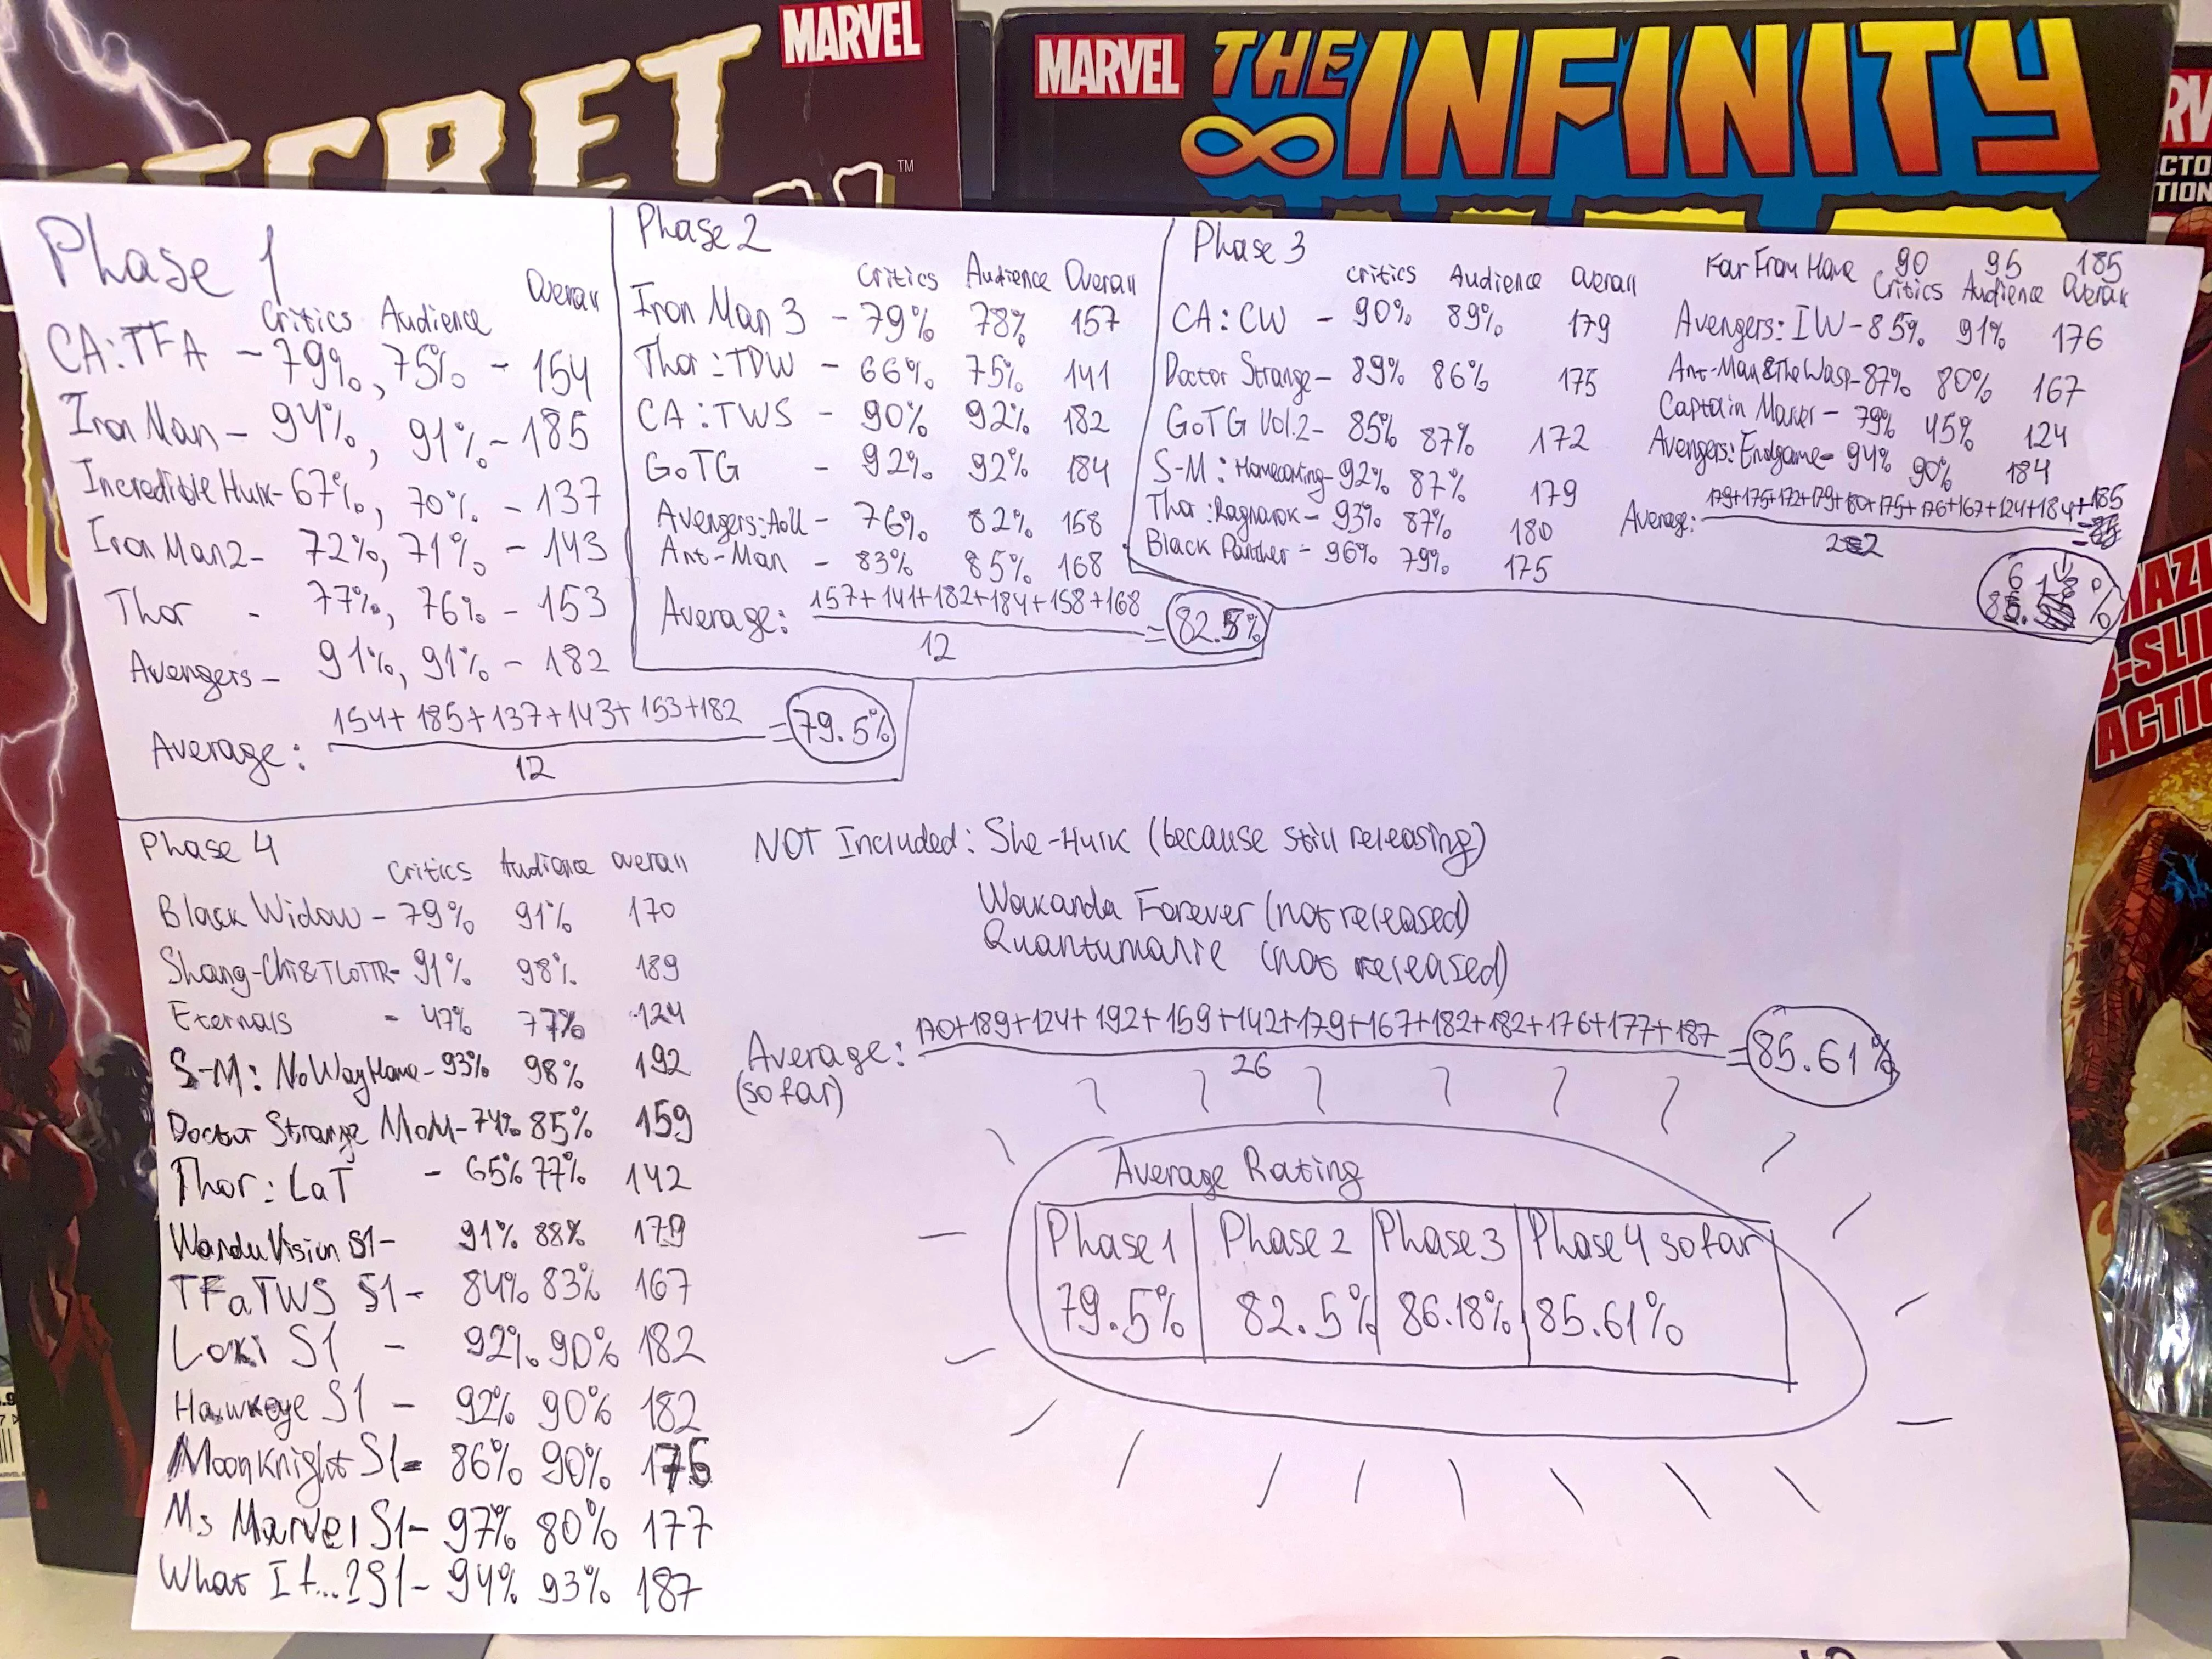 MARVEL
SECRET
TM
MARVEL
THE INFINITY
Phase 1
Critics Audience Overall
CA:TFA - 79%, 75% - 154
Iron Man - 94%, 91% - 185
Incredible Hulk - 67%, 70% - 137
Iron Man 2 - 72%, 71% - 143
Thor - 77%, 76% - 153
Avengers - 91%, 91% - 182
Average: 154+185+137+143+153+182
12
=79.5%
Phase 2
Critics Audience Overall
Iron Man 3 - 79% 78% 157
Thor:TDW - 66% 75% 141
CA:TWS - 90% 92% 182
GoTG - 92% 92% 184
Avengers:AoU - 76% 82% 158
Ant-Man - 83% 85% 168
Average: 157+141+182+184+158+168
12
=82.5%
Phase 3
Critics Audience Overall
CA:CW - 90% 89% 179
Doctor Strange - 89% 86% 175
GoTG Vol.2 - 85% 87% 172
S-M: Homecoming - 92% 87% 179
Thor:Ragnarok - 93% 87% 180
Black Panther - 96% 79% 175
Far From Home 90 95 185
Critics Audience Overall
Avengers: IW - 85% 91% 176
Ant-Man & The Wasp - 87% 80% 167
Captain Marvel - 79% 45% 124
Avengers: Endgame - 94% 90% 184
Average: 179+175+172+179+180+175+176+167+124+184+185
22
Phase 4
Critics Audience Overall
Black Widow - 79% 91% 170
Shang-Chi&TLoTTR - 91% 98% 189
Eternals - 47% 77% 124
S-M: No Way Home - 93% 98% 192
Doctor Strange MoM - 74% 85% 159
Thor: LaT - 65% 77% 142
WandaVision S1 - 91% 88% 179
TFaTWS S1 - 84% 83% 167
Loki S1 - 92% 90% 182
Hawkeye S1 - 92% 90% 182
Moon Knight S1 - 86% 90% 176
Ms Marvel S1 - 97% 80% 177
What If...? S1 - 94% 93% 187
NOT Included: She-Hulk (because still releasing)
Wakanda Forever (not released)
Quantumanie (not released)
Average: 170+189+124+192+159+142+179+167+182+182+176+177+187
(so far)
26
=85.61%
Average Rating
Phase 1 Phase 2 Phase 3 Phase 4 so far
79.5% 82.5% 86.18% 85.61%
ACTIO